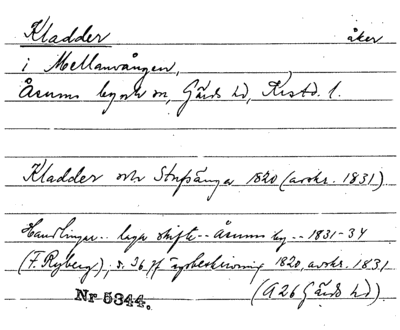 Kladder åker
i Mellanvången,
Åsums by och sn, Gärds hd, Krstd. l.
Kladder och Strfvänga 1820 (avskr. 1831)
Handlingar .. laga skifte .. Åsums by .. 1831-34
(F. Ryberg), s. 36 ff ägobeskrivning 1820, avskr. 1831
Nr 5344. (A26 Gärds hd)